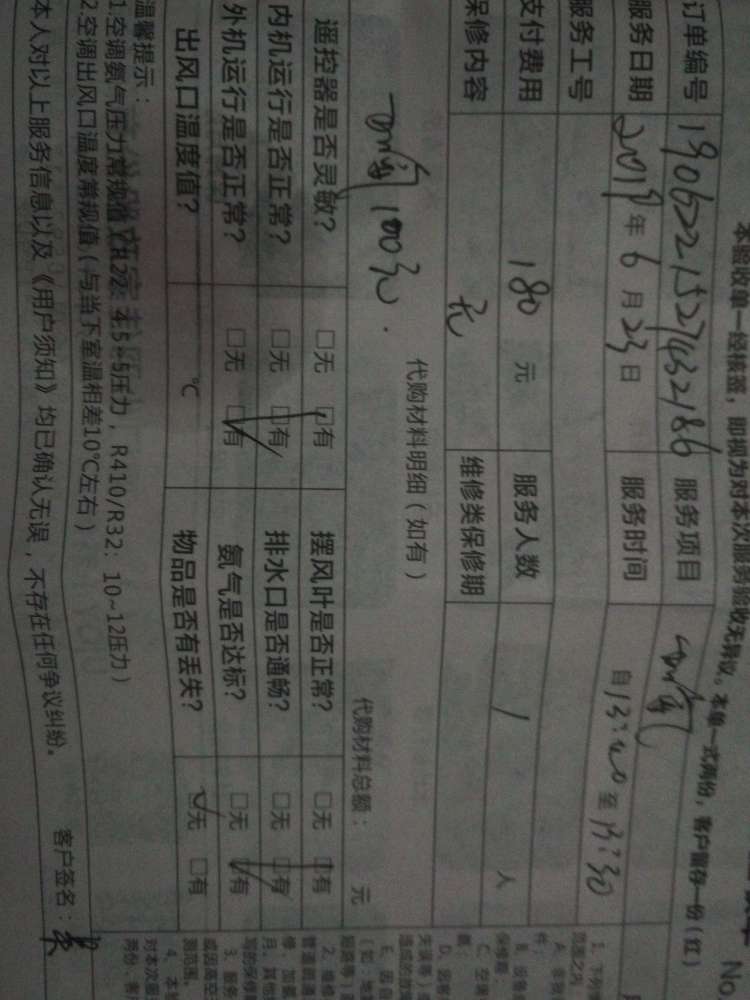 本验收单一经核签，即视为对本次服务验收无异议。本单一式两份，客户留存一份（红）
No
订单编号 190622152743286 服务项目 加氟
服务日期 2019年6月23日 服务时间 自13:00至13:30
服务工号
支付费用 180元 服务人数 1人
保修内容 无 维修类保修期
代购材料明细（如有）
加氟100元. 代购材料总额： 元
遥控器是否灵敏？ □无 □有 摆风叶是否正常？ □无 □有
内机运行是否正常？ □无 □有 排水口是否通畅？ □无 □有
外机运行是否正常？ □无 □有 氨气是否达标？ □无 □有
出风口温度值？ ℃ 物品是否有丢失？ □无 □有
温馨提示：
1空调氨气压力常规值（R22：4.5~5压力，R410/R32：10~12压力）
2空调出风口温度常规值（与当下室温相差10℃左右）
本人对以上服务信息以及《用户须知》均已确认无误，不存在任何争议纠纷。
客户签名：